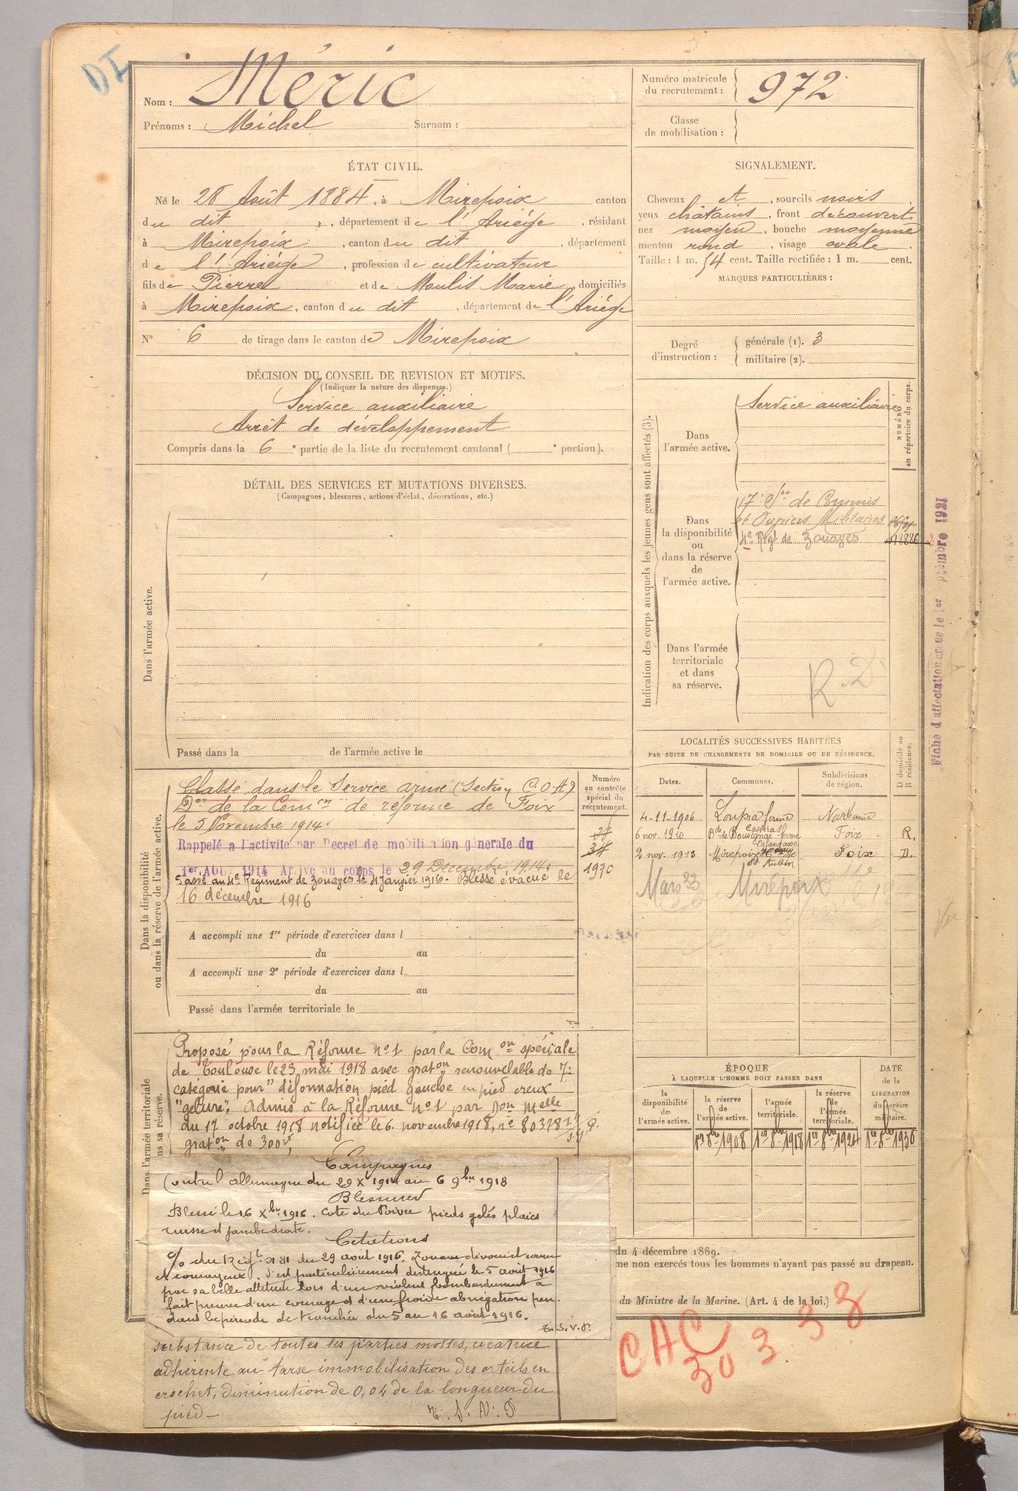 DI
Nom : Méric
Prénoms : Michel Surnom :
Numéro matricule du recrutement : 972
Classe de mobilisation :
ÉTAT CIVIL.
Né le 28 Août 1884, à Mirepoix canton
du dit, département de l'Ariége, résidant
à Mirepoix, canton du dit, département
de l'Ariége, profession de cultivateur
fils de Pierre et de Moulis Marie, domiciliés
à Mirepoix, canton du dit, département de l'Ariége
N° 6 de tirage dans le canton de Mirepoix
SIGNALEMENT.
Cheveux et, sourcils noirs
yeux châtains, front découvert,
nez moyen, bouche moyenne
menton rond, visage ovale
Taille : 1 m. 54 cent. Taille rectifiée : 1 m. cent.
MARQUES PARTICULIÈRES :
Degré d'instruction : générale (1). 3
militaire (2).
DÉCISION DU CONSEIL DE REVISION ET MOTIFS.
(Indiquer la nature des dispenses.)
Service auxiliaire
Arrêt de développement
Compris dans la 6e partie de la liste du recrutement cantonal ( e portion).
DÉTAIL DES SERVICES ET MUTATIONS DIVERSES.
(Campagnes, blessures, actions d'éclat, décorations, etc.)
Dans l'armée active.
Passé dans la de l'armée active le
Indication des corps auxquels les jeunes gens sont affectés (3).
NUMÉRO au répertoire du corps.
Dans l'armée active.
Service auxiliaire
Dans la disponibilité ou dans la réserve de l'armée active.
17e Son de Commis
et Ouvriers Militaires
4e Régt de Zouaves
Dans l'armée territoriale et dans sa réserve.
R.D
Fiche d'affectation créée le 1er septembre 1921
LOCALITÉS SUCCESSIVES HABITÉES
PAR SUITE DE CHANGEMENTS DE DOMICILE OU DE RÉSIDENCE.
Dates. Communes. Subdivisions de région. D domicile ou R résidence.
4-11-1906 Narbonne
6 nov. 1910 Foix R.
2 nov. 1913 Mirepoix Foix D.
Mars 23 Mirepoix
Dans la disponibilité ou dans la réserve de l'armée active.
Numéro au contrôle spécial du recrutement.
1990
Classé dans le Service armé (Section C.O.A)
Don de la Comon de réforme de Foix
le 5 Novembre 1914.
Rappelé à l'activité par Décret de mobilisation générale du
1er Août 1914 Arrivé au corps le 29 Décembre 1914.
Passé au 4e Régiment de Zouaves le 4 Janvier 1916. Blessé évacué le
16 décembre 1916
A accompli une 1re période d'exercices dans l
du au
A accompli une 2e période d'exercices dans l
du au
Passé dans l'armée territoriale le
Dans l'armée territoriale
Proposé pour la Réforme n°1 par la Comon spéciale
de Toulouse le 23 mai 1918 avec graton renouvelable de 7e
catégorie pour "déformation pied gauche en pied creux
"gelure". Admis à la Réforme n°1 par Don Melle
du 17 octobre 1918 notifiée le 6 novembre 1918,
graton de 300f
Campagnes
Contre l'Allemagne du 29 Xbre 1914 au 6 9bre 1918
Blessures
Blessé le 16 Xbre 1916. Cote du Poivre pieds gelés plaies
cuisse et jambe droite.
Citations
O/ du Régt n° 31 du 29 août 1916. Zouave dévoué et
courageux, s'est particulièrement distingué le 5 août 1916
par sa belle attitude lors d'un violent bombardement a
fait preuve d'un courage et d'une froide abnégation pen
dant la période de tranchée du 5 au 16 août 1916.
substance de toutes les parties molles, cicatrice
adhérente au tarse immobilisation des orteils en
crochet, diminution de 0,04 de la longueur du
pied
ÉPOQUE
À LAQUELLE L'HOMME DOIT PASSER DANS
la disponibilité de l'armée active.
la réserve de l'armée active.
l'armée territoriale.
la réserve de l'armée territoriale.
DATE de la LIBÉRATION du service militaire.
1er 8bre 1908 1er 8bre 1918 1er 8bre 1924 1er 8bre 1930
du 4 décembre 1889.
me non exercés tous les hommes n'ayant pas passé au drapeau.
du Ministre de la Marine. (Art. 4 de la loi.)
CAC
30 333